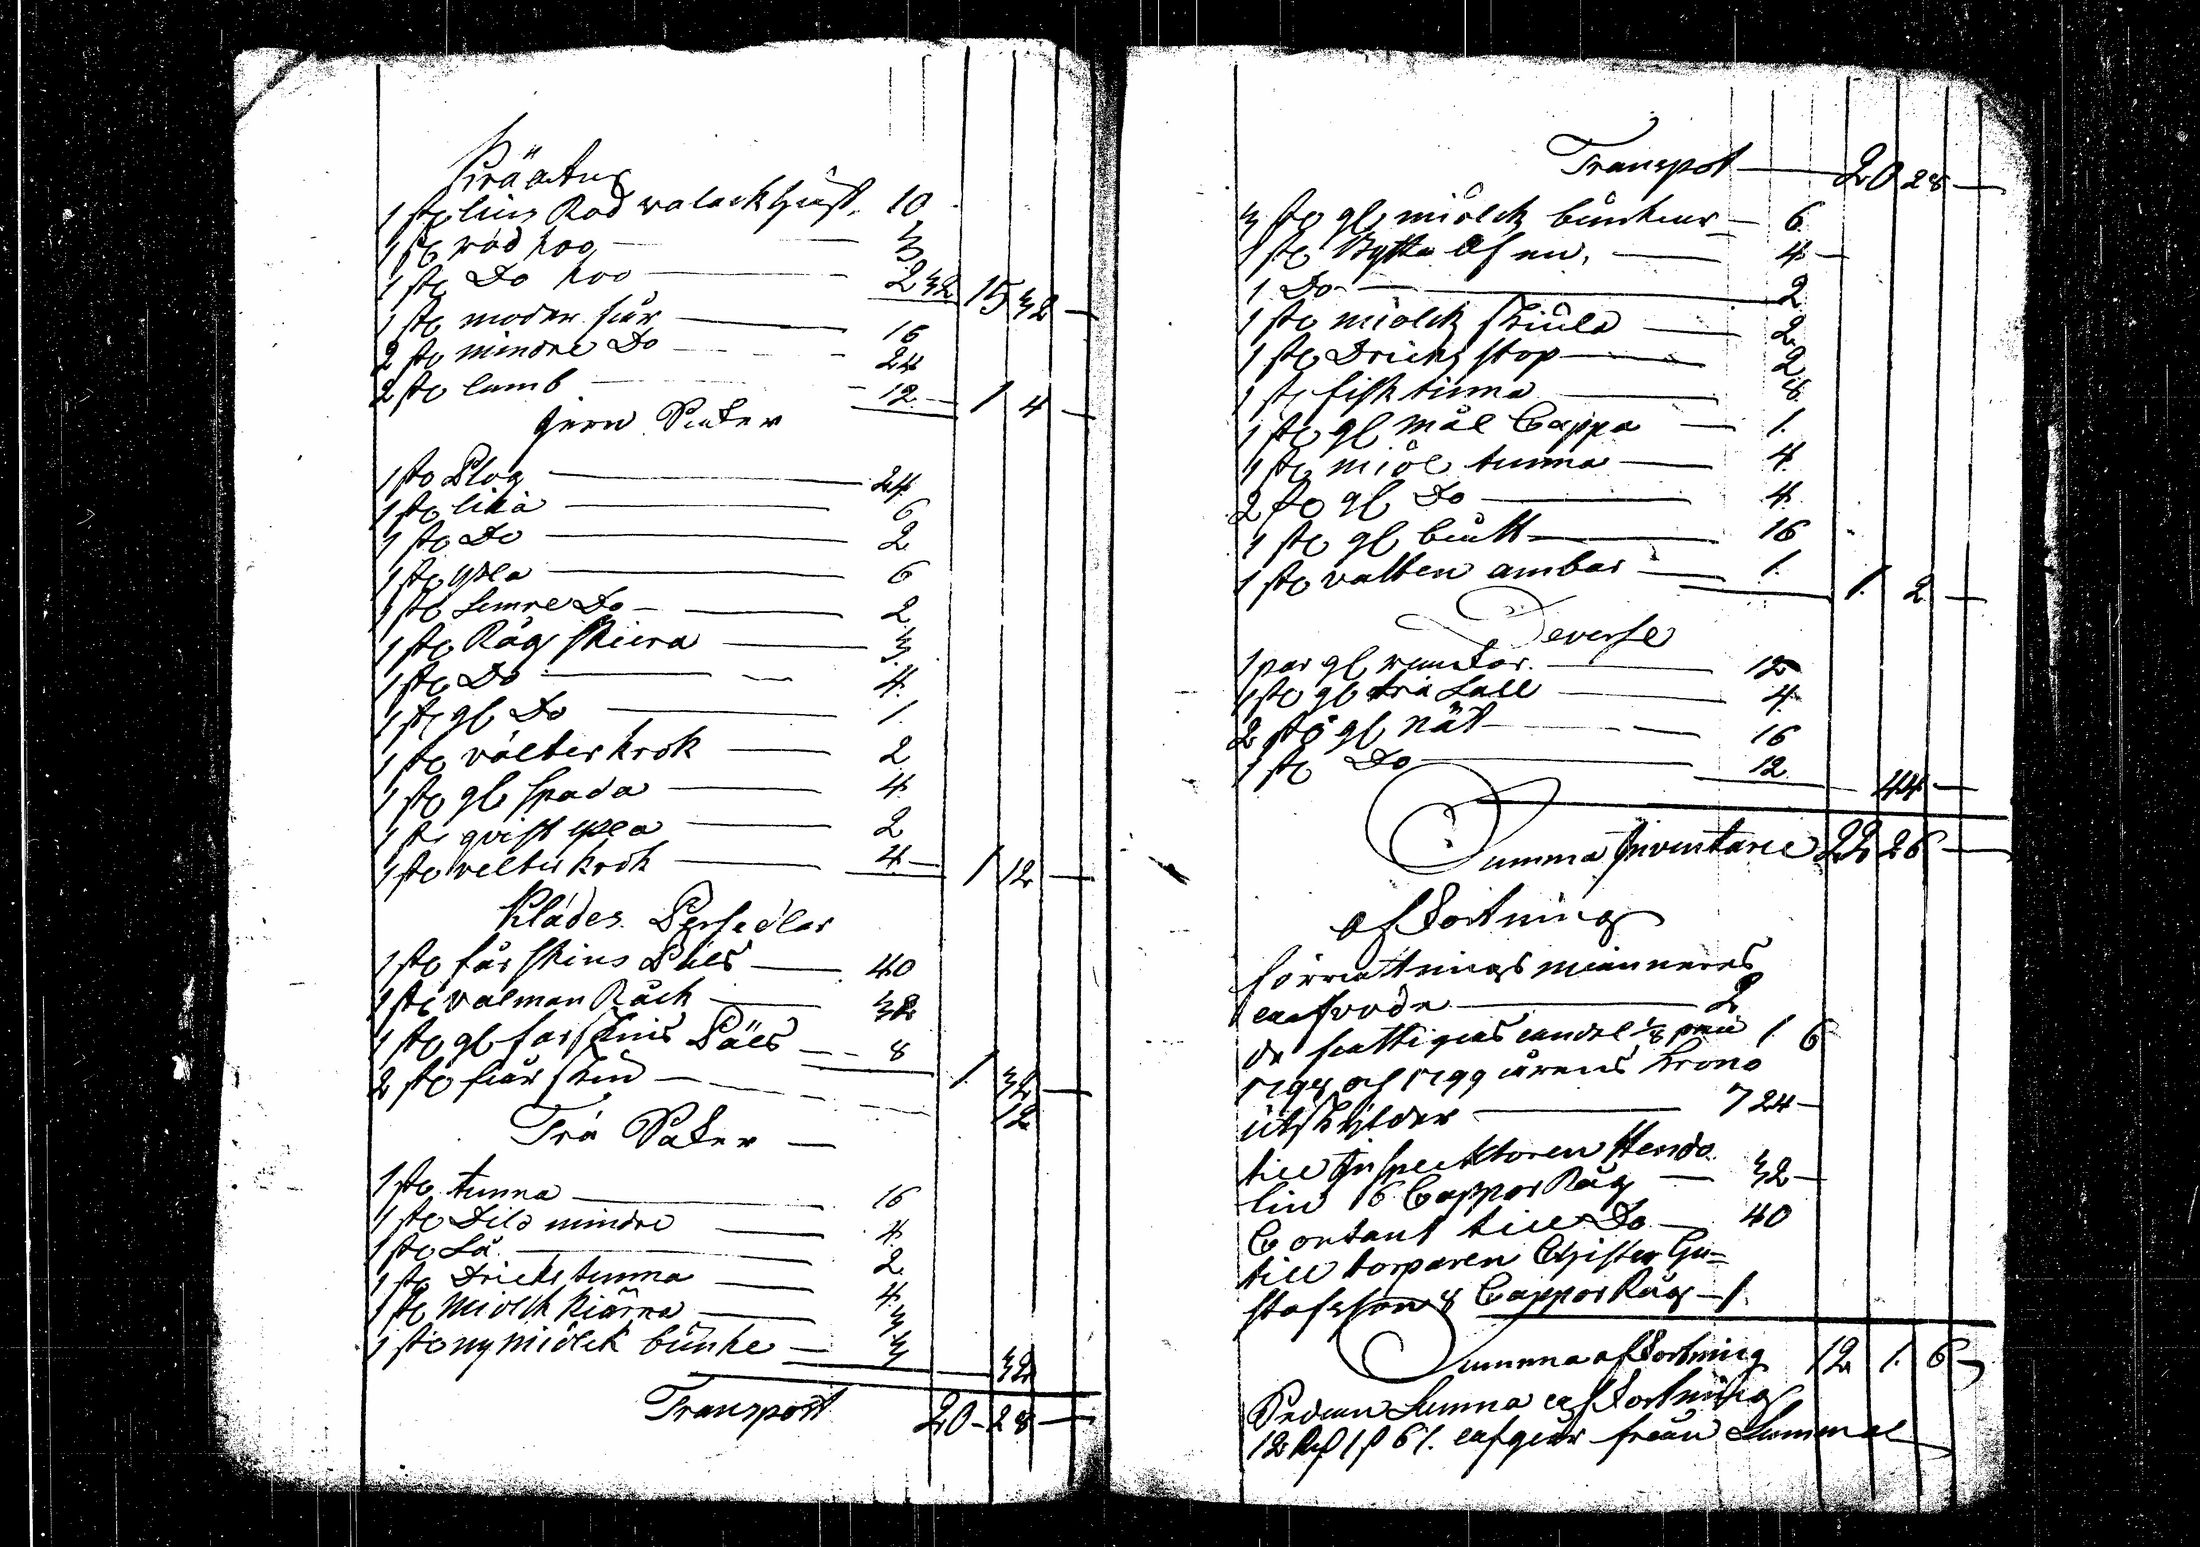 Kräatur
1 st lius Röd valack häst. 10
1 st röd koo — 3
1 st Do koo — 2 32 15 32 —
1 st moder får — 16
2 st mindre Do — 24
2 st lamb — 12 — 1 4 —
Jern Saker
1 st Plog — 24
1 st lia — 6
1 st Do — 2
1 st yxa — 6
1 st semre Do — 2
1 st Råg skiera — 3
1 st Do — 4
1 st gl Do — 1
1 st välter krok — 2
1 st gl spada — 4
1 st qvist yxa — 2
1 st velter krok — 4 — 1 12 —
Kläder Persedlar
1 st får skins Päls — 40
1 st valman Råck — 32
1 st gl farskins Päls — 8 1 32 —
2 st får skin — 12
Trä Saker —
1 st tunna — 16
1 st Dito mindre — 4
1 st Så — 2
1 st Dricks tunna — 4
1 st Miölck kiärna — 3
1 st ny miölck bunke — 3 — 32
Transport 20 - 28 —
Transpot — 20 28 —
3 st gl miölck bunkar — 6
1 st Bytta af en — 4 —
1 Do — 2
1 st miölck skiula — 2
1 st Dricks stop — 2
1 st fisk tinna — 8
1 st gl mål Cappa — 1
1 st miöl tunna — 4
2 st gl Do — 4
1 st gl butt — 16
1 st vatten ambar — 1 — 1 2 —
Deverse
1 par gl — 12
1 st gl trä sall — 4
2 st gl nät — 16
1 st Do — 12 — 44 —
Summa Inventarie 22 26 —
afkortning
förrättnings männernes
arfvode — 2
de fattigas andel 1/8 pru 1 6
1798 och 1799 årens krono
utskylder — 7 24 —
till Inspecktoren Hendo
lin 6 Cappor Råg — 32 —
Contant till Do — 40
till torparen Christer Gu=
stafsson 8 Cappor Råg — 1
Summa afkortning 12 1 6 —
Sedan Summa afkortning
12 Rd 1 s 6 r. afgår från Summal